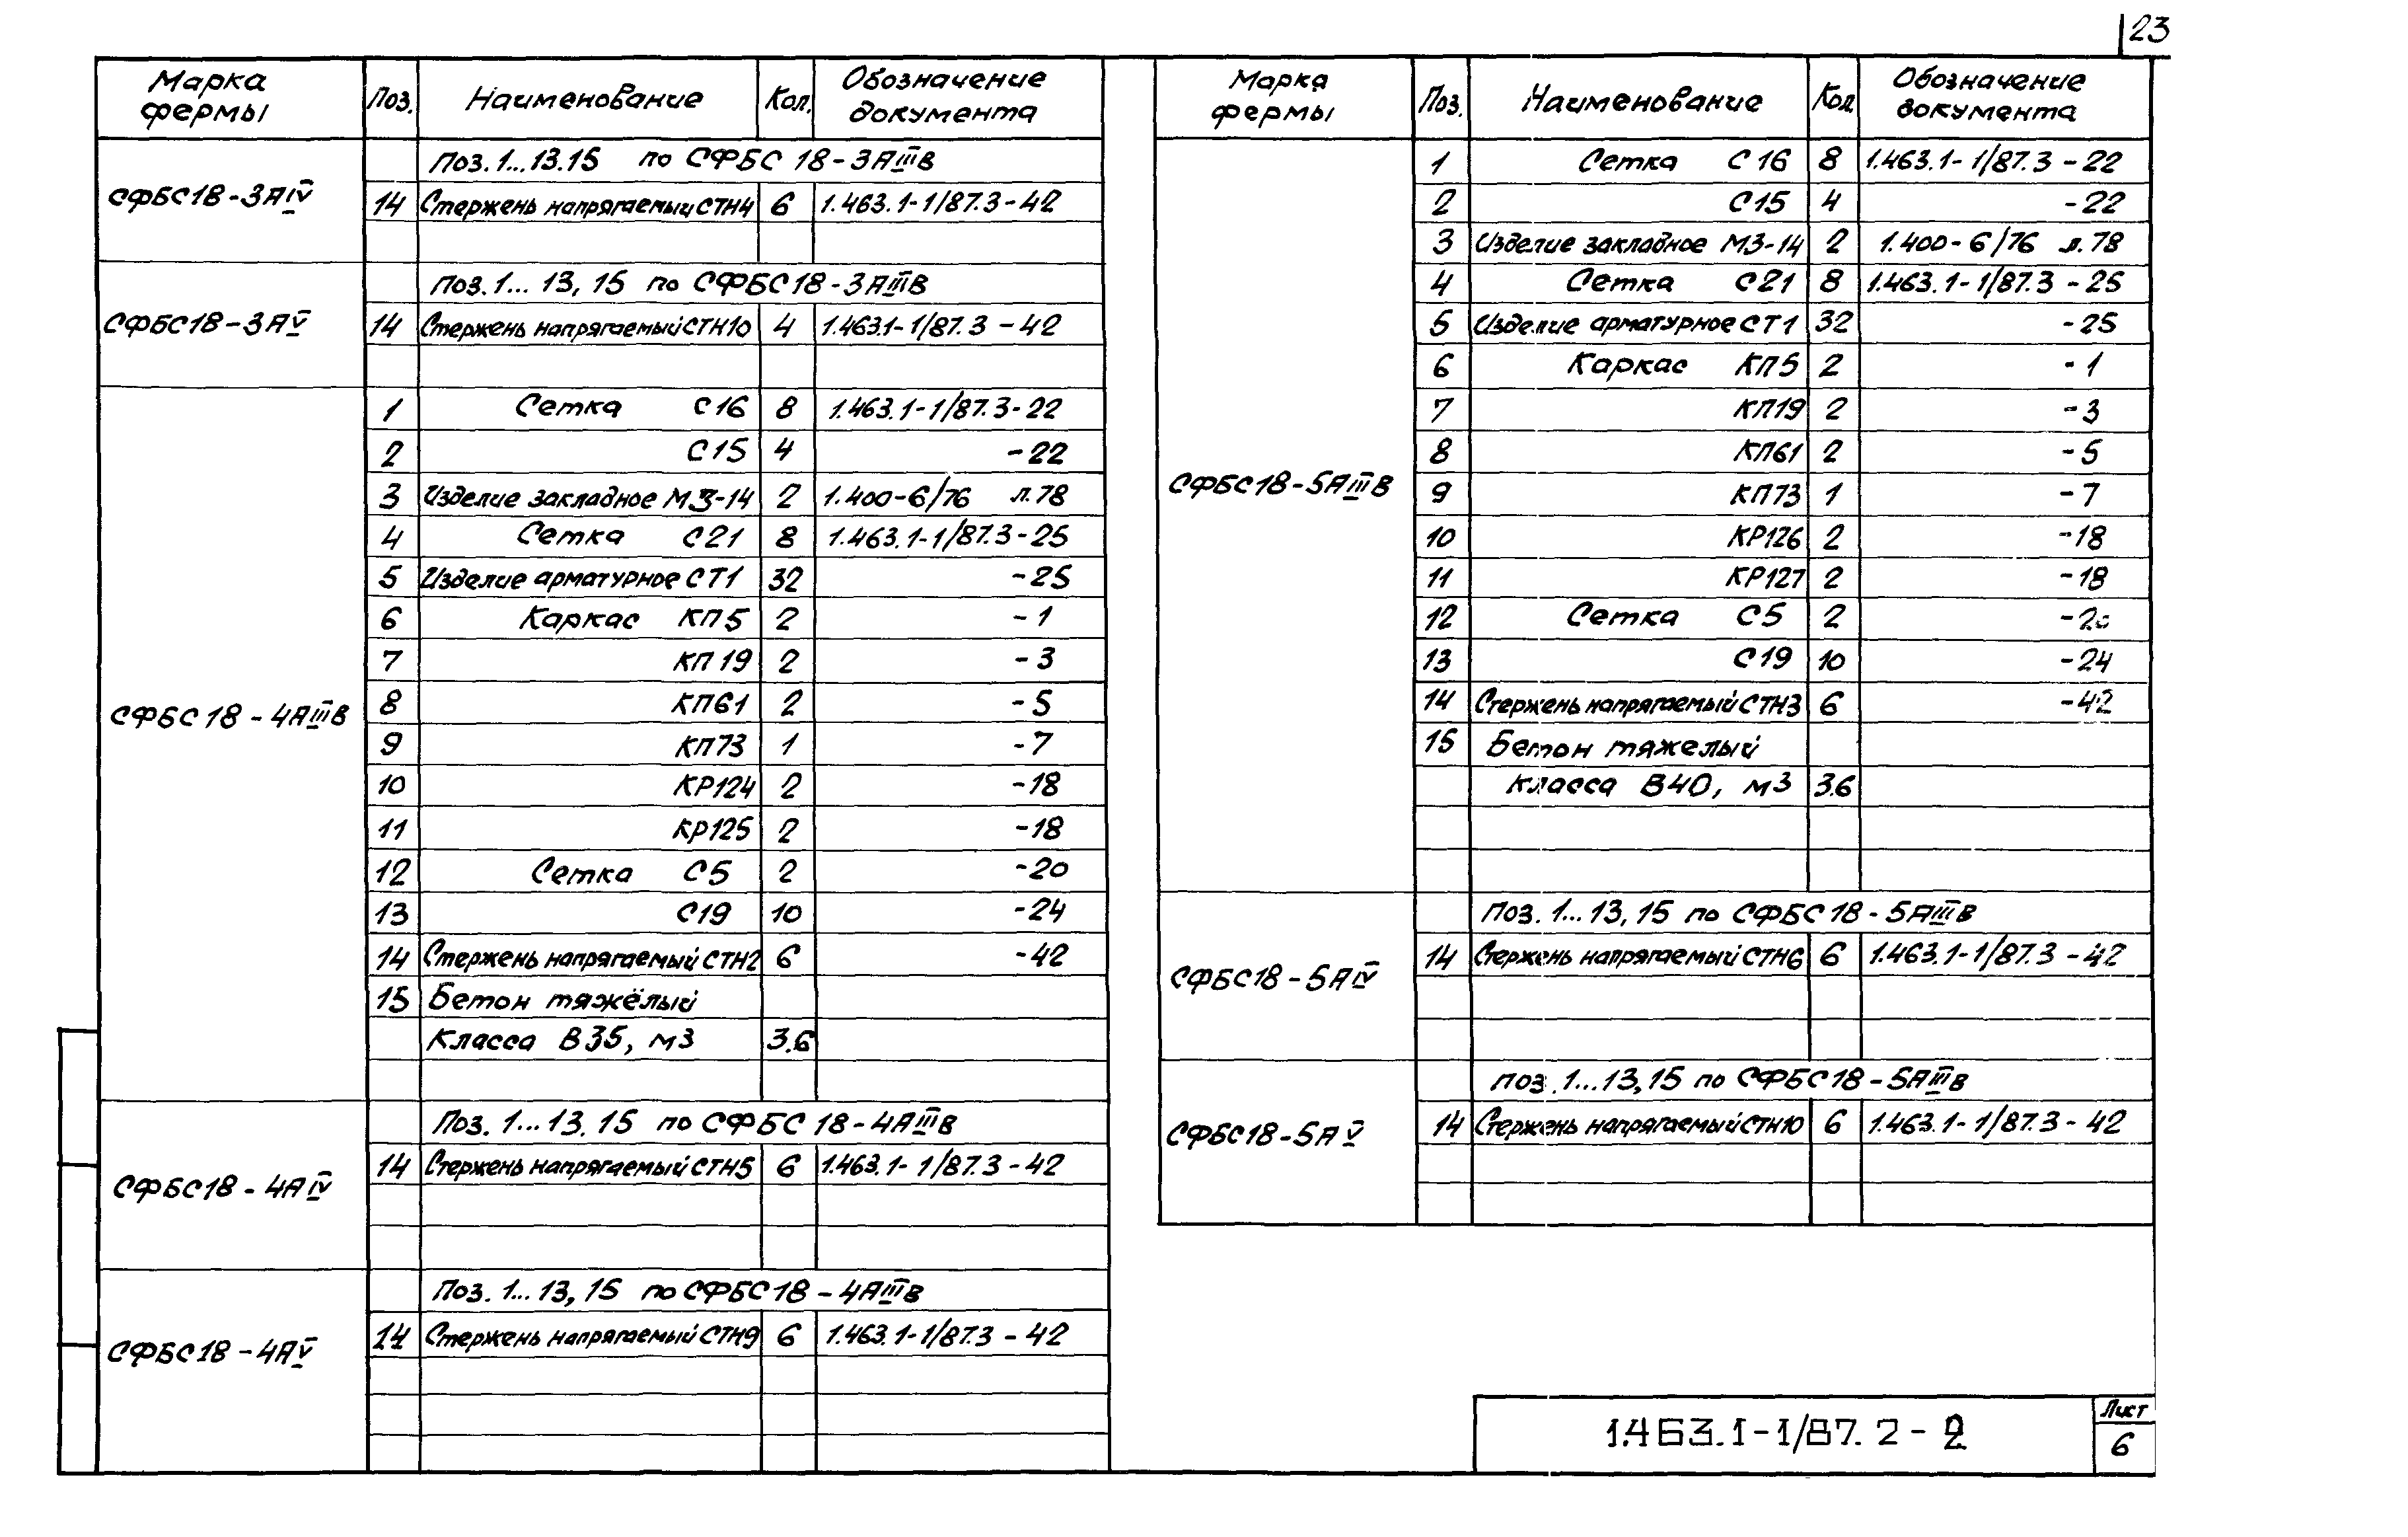 23
Марка фермы Поз. Наименование Кол. Обозначение документа
СФБС18-3АIV
Поз. 1...13.15 по СФБС 18-3АIIIв
14 Стержень напрягаемый СТН4 6 1.463.1-1/87.3-42
СФБС18-3АV
Поз. 1... 13, 15 по СФБС18-3АIIIв
14 Стержень напрягаемый СТН10 4 1.463.1-1/87.3-42
СФБС18-4АIIIв
1 Сетка С16 8 1.463.1-1/87.3-22
2 С15 4 -22
3 Изделие закладное МЗ-14 2 1.400-6/76 л.78
4 Сетка С21 8 1.463.1-1/87.3-25
5 Изделие арматурное СТ1 32 -25
6 Каркас КП5 2 -1
7 КП19 2 -3
8 КП61 2 -5
9 КП73 1 -7
10 КР124 2 -18
11 КР125 2 -18
12 Сетка С5 2 -20
13 С19 10 -24
14 Стержень напрягаемый СТН2 6 -42
15 Бетон тяжёлый
Класса В35, м3 3.6
СФБС18-4АIV
Поз. 1...13.15 по СФБС 18-4АIIIв
14 Стержень напрягаемый СТН5 6 1.463.1-1/87.3-42
СФБС18-4АV
Поз. 1... 13, 15 по СФБС18-4АIIIв
14 Стержень напрягаемый СТН9 6 1.463.1-1/87.3-42
Марка фермы Поз. Наименование Кол Обозначение документа
СФБС18-5АIIIв
1 Сетка С16 8 1.463.1-1/87.3-22
2 С15 4 -22
3 Изделие закладное МЗ-14 2 1.400-6/76 л.78
4 Сетка С21 8 1.463.1-1/87.3-25
5 Изделие арматурное СТ1 32 -25
6 Каркас КП5 2 -1
7 КП19 2 -3
8 КП61 2 -5
9 КП73 1 -7
10 КР126 2 -18
11 КР127 2 -18
12 Сетка С5 2 -20
13 С19 10 -24
14 Стержень напрягаемый СТН3 6 -42
15 Бетон тяжелый
класса В40, м3 3.6
СФБС18-5АIV
Поз. 1...13,15 по СФБС18-5АIIIв
14 Стержень напрягаемый СТН6 6 1.463.1-1/87.3-42
СФБС18-5АV
поз. 1...13,15 по СФБС18-5АIIIв
14 Стержень напрягаемый СТН10 6 1.463.1-1/87.3-42
1.463.1-1/87.2-2
Лист
6